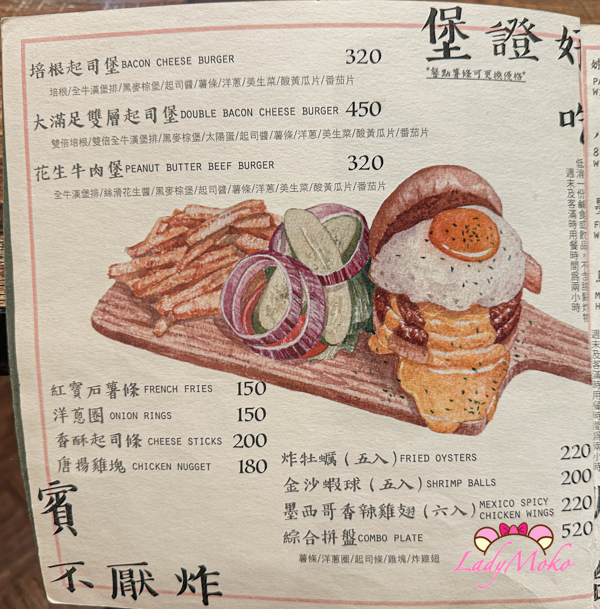 堡證好吃
"餐點薯條可更換優格"
培根起司堡BACON CHEESE BURGER 320
培根/全牛漢堡排/黑麥棕堡/起司醬/薯條/洋蔥/美生菜/酸黃瓜片/番茄片
大滿足雙層起司堡DOUBLE BACON CHEESE BURGER 450
雙倍培根/雙倍全牛漢堡排/黑麥棕堡/太陽蛋/起司醬/薯條/洋蔥/美生菜/酸黃瓜片/番茄片
花生牛肉堡PEANUT BUTTER BEEF BURGER 320
全牛漢堡排/絲滑花生醬/黑麥棕堡/起司醬/薯條/洋蔥/美生菜/酸黃瓜片/番茄片
週末及客滿時用餐時間為兩小時
紅寶石薯條FRENCH FRIES 150
洋蔥圈ONION RINGS 150
香酥起司條CHEESE STICKS 200
唐揚雞塊CHICKEN NUGGET 180
炸牡蠣(五入)FRIED OYSTERS 220
金沙蝦球(五入)SHRIMP BALLS 200
墨西哥香辣雞翅(六入)MEXICO SPICY CHICKEN WINGS 220
綜合拼盤COMBO PLATE 520
薯條/洋蔥圈/起司條/雞塊/炸雞翅
賓不厭炸
LadyMoko